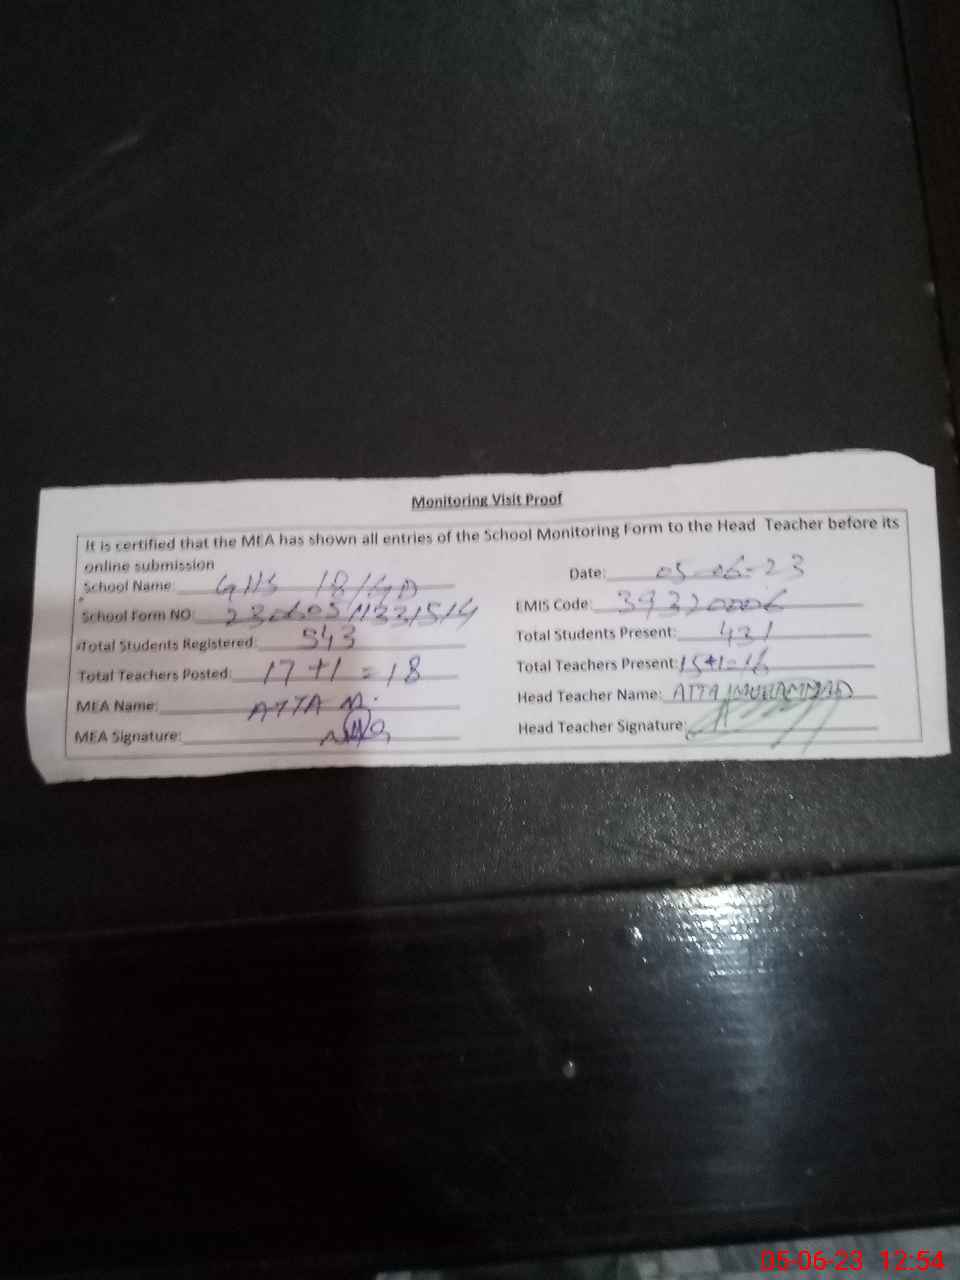 Monitoring Visit Proof
It is certified that the MEA has shown all entries of the School Monitoring Form to the Head Teacher before its
online submission
School Name: GHS 18/GD Date: 05-06-23
School Form NO: EMIS Code: 39320006
Total Students Registered: 543 Total Students Present: 431
Total Teachers Posted: 17+1=18 Total Teachers Present: 15+1=16
MEA Name: ATTA M. Head Teacher Name: ATTA MUHAMMAD
MEA Signature: Head Teacher Signature:
05-06-23 12:54